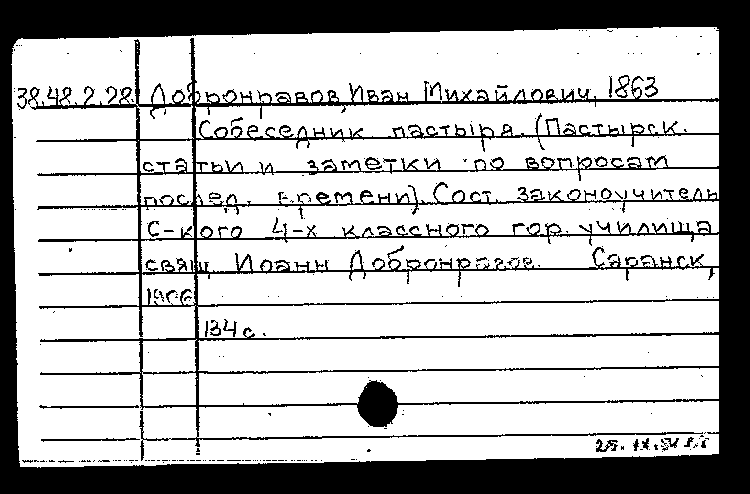 38.48.2.28 Добронравов, Иван Михайлович, 1863
Собеседник пастыря. (Пастырск.
статьи и заметки по вопросам
послед. времени). Сост. законоучитель
С-кого 4-х классного гор. училища
свящ. Иоанн Добронравов. Саранск,
1906
134 с.